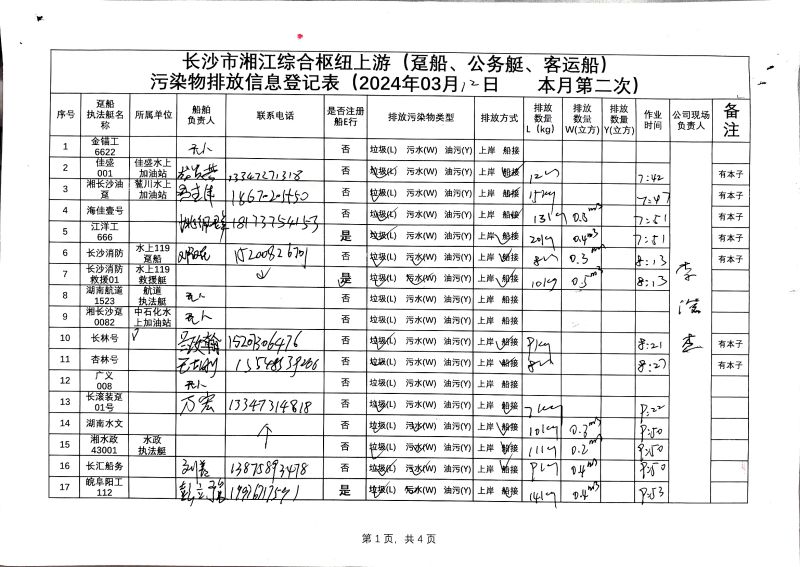 长沙市湘江综合枢纽上游（趸船、公务艇、客运船）
污染物排放信息登记表（2024年03月12日 本月第二次）
序号 趸船执法艇名称 所属单位 船舶负责人 联系电话 是否注册船E行 排放污染物类型 排放方式 排放数量L（kg） 排放数量W(立方) 排放数量Y(立方) 作业时间 公司现场负责人 备注
1 金锚工6622 无人 否 垃圾(L) 污水(W) 油污(Y) 上岸 船接
2 佳盛001 佳盛水上加油站 13347271318 否 垃圾(L) 污水(W) 油污(Y) 上岸 船接 12kg 7:42 有本子
3 湘长沙油趸 鹭川水上加油站 18670201450 否 垃圾(L) 污水(W) 油污(Y) 上岸 船接 15kg 7:47 有本子
4 海佳壹号 18173754153 否 垃圾(L) 污水(W) 油污(Y) 上岸 船接 13kg 0.5m3 7:51 有本子
5 江洋工666 是 垃圾(L) 污水(W) 油污(Y) 上岸 船接 20kg 0.4m3 7:51 有本子
6 长沙消防 水上119趸船 15200826701 否 垃圾(L) 污水(W) 油污(Y) 上岸 船接 8kg 0.3m3 8:13 有本子
7 长沙消防救援01 水上119救援艇 是 垃圾(L) 污水(W) 油污(Y) 上岸 船接 10kg 0.5m3 8:13
8 湖南航道1523 航道执法艇 无人 否 垃圾(L) 污水(W) 油污(Y) 上岸 船接
9 湘长沙趸0082 中石化水上加油站 无人 否 垃圾(L) 污水(W) 油污(Y) 上岸 船接
10 长林号 1520306476 否 垃圾(L) 污水(W) 油污(Y) 上岸 船接 9kg 8:21 有本子
11 杏林号 否 垃圾(L) 污水(W) 油污(Y) 上岸 船接 8kg 8:27 有本子
12 广义008 无人 否 垃圾(L) 污水(W) 油污(Y) 上岸 船接
13 长滚装趸01号 万宏 13347314818 否 垃圾(L) 污水(W) 油污(Y) 上岸 船接 7kg 9:22
14 湖南水文 否 垃圾(L) 污水(W) 油污(Y) 上岸 船接 10kg 0.3m3 9:50
15 湘水政43001 水政执法艇 否 垃圾(L) 污水(W) 油污(Y) 上岸 船接 11kg 0.2m3 9:50
16 长汇船务 13875893478 否 垃圾(L) 污水(W) 油污(Y) 上岸 船接 9kg 0.4m3 9:50
17 皖阜阳工112 是 垃圾(L) 污水(W) 油污(Y) 上岸 船接 14kg 0.4m3 9:53
第 1 页，共 4 页